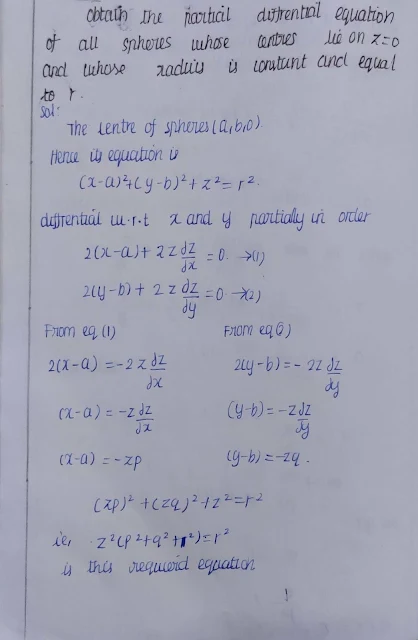 obtain the partial diffrential equation
of all spheres whose centres lie on z=0
and whose radius is constant and equal
to r.
sol:
The centre of spheres (a,b,0).
Hence its equation is
(x-a)²+(y-b)²+z²=r².
diffrential w.r.t x and y partially in order
2(x-a)+2z dz/dx = 0. →(1)
2(y-b)+2z dz/dy = 0 →(2)
From eq (1) From eq
2(x-a) = -2z dz/dx 2(y-b) = -2z dz/dy
(x-a) = -z dz/dx (y-b) = -z dz/dy
(x-a) = -zp (y-b) = -zq.
(zp)²+(zq)²+z²=r²
ie, z²(p²+q²+1²)=r²
is this requierd equation